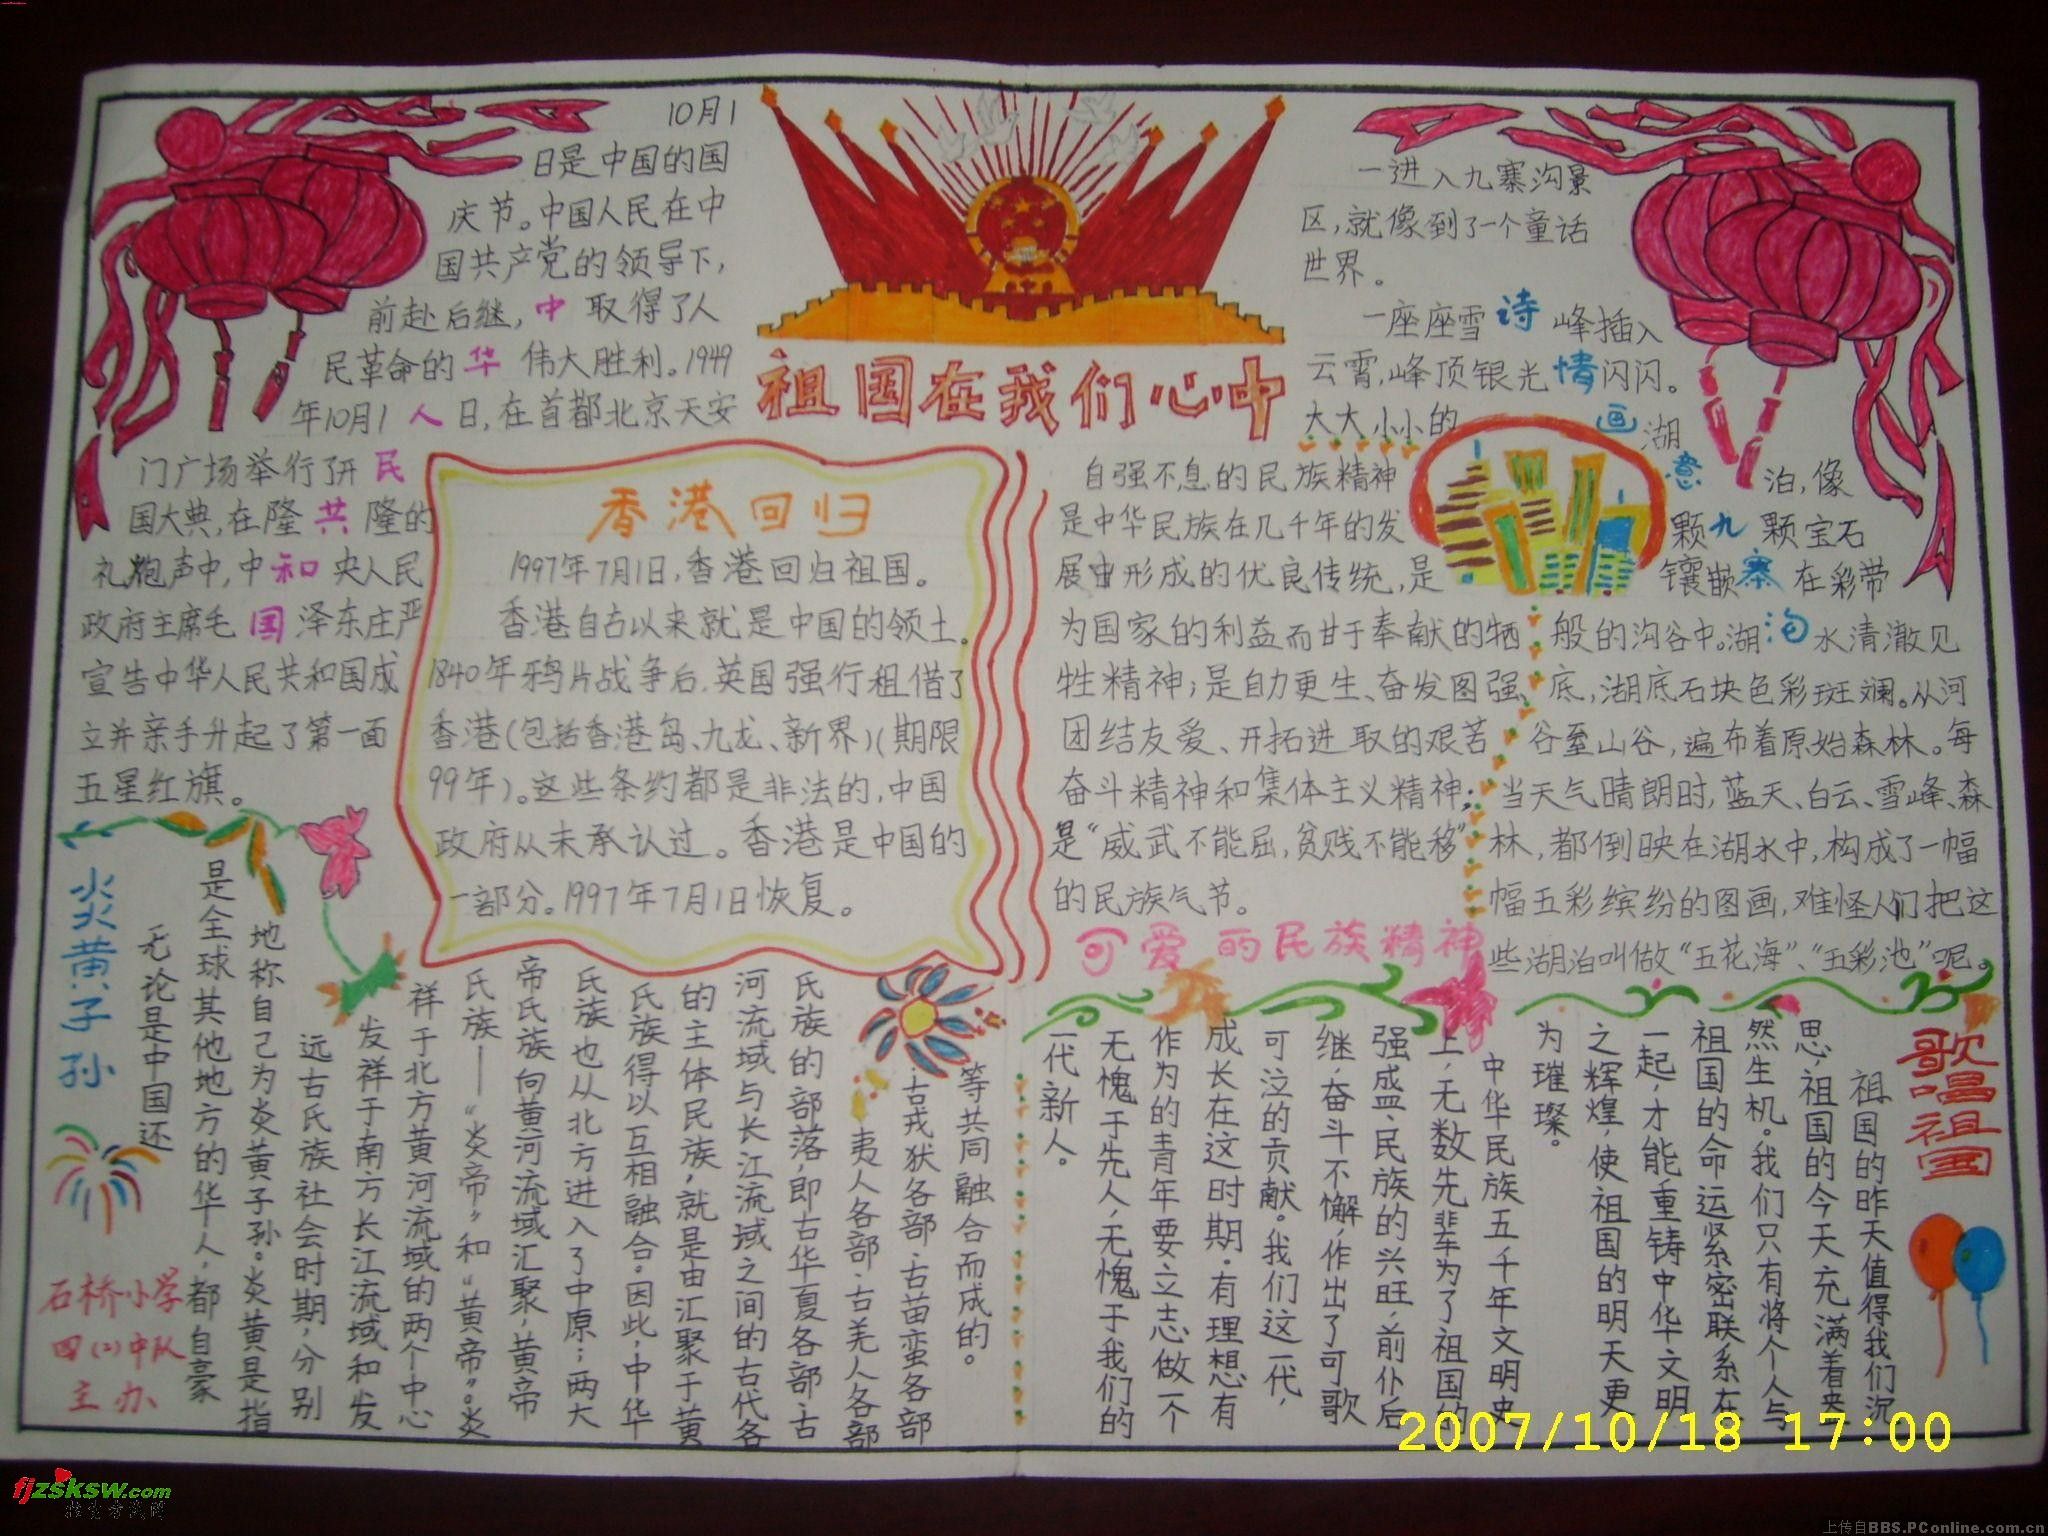 祖国在我们心中
10月1
日是中国的国
庆节。中国人民在中
国共产党的领导下,
前赴后继,取得了人
民革命的伟大胜利。1949
年10月1日,在首都北京天安
门广场举行了开
国大典,在隆隆的
礼炮声中,中央人民
政府主席毛泽东庄严
宣告中华人民共和国成
立并亲手升起了第一面
五星红旗。
中
华
人
民
共
和
国
香港回归
1997年7月1日,香港回归祖国。
香港自古以来就是中国的领土。
1840年鸦片战争后,英国强行租借了
香港(包括香港岛、九龙、新界)(期限
99年)。这些条约都是非法的,中国
政府从未承认过。香港是中国的
一部分。1997年7月1日恢复。
自强不息的民族精神
是中华民族在几千年的发
展中形成的优良传统,是
为国家的利益而甘于奉献的牺
牲精神;是自力更生、奋发图强、
团结友爱、开拓进取的艰苦
奋斗精神和集体主义精神;
是“威武不能屈,贫贱不能移”
的民族气节。
可爱的民族精神
一进入九寨沟景
区,就像到了一个童话
世界。
一座座雪峰插入
云霄,峰顶银光闪闪。
大大小小的湖
泊,像
颗颗宝石
镶嵌在彩带
般的沟谷中。湖水清澈见
底,湖底石块色彩斑斓。从河
谷至山谷,遍布着原始森林。每
当天气晴朗时,蓝天、白云、雪峰、森
林,都倒映在湖水中,构成了一幅
幅五彩缤纷的图画,难怪人们把这
些湖泊叫做“五花海”、“五彩池”呢。
诗
情
画
意
九
寨
沟
炎黄子孙
无论是中国还
是全球其他地方的华人,都自豪
地称自己为炎黄子孙。炎黄是指
远古氏族社会时期,分别
发祥于南方长江流域和发
祥于北方黄河流域的两个中心
氏族——“炎帝”和“黄帝”。炎
帝氏族向黄河流域汇聚,黄帝
氏族也从北方进入了中原;两大
氏族得以互相融合。因此,中华
的主体民族,就是由汇聚于黄
河流域与长江流域之间的古代各
氏族的部落,即古华夏各部、古
夷人各部、古羌人各部
、古戎狄各部、古苗蛮各部
等共同融合而成的。
石桥小学
四(2)中队
主办
歌唱祖国
祖国的昨天值得我们沉
思,祖国的今天充满着盎
然生机。我们只有将个人与
祖国的命运紧密联系在
一起,才能重铸中华文明
之辉煌,使祖国的明天更
为璀璨。
中华民族五千年文明史
上,无数先辈为了祖国的
强盛、民族的兴旺,前仆后
继,奋斗不懈,作出了可歌
可泣的贡献。我们这一代,
成长在这时期。有理想有
作为的青年要立志做一个
无愧于先人,无愧于我们的
一代新人。
2007/10/18 17:00
fjzsksw.com
上传自BBS.PConline.com.cn